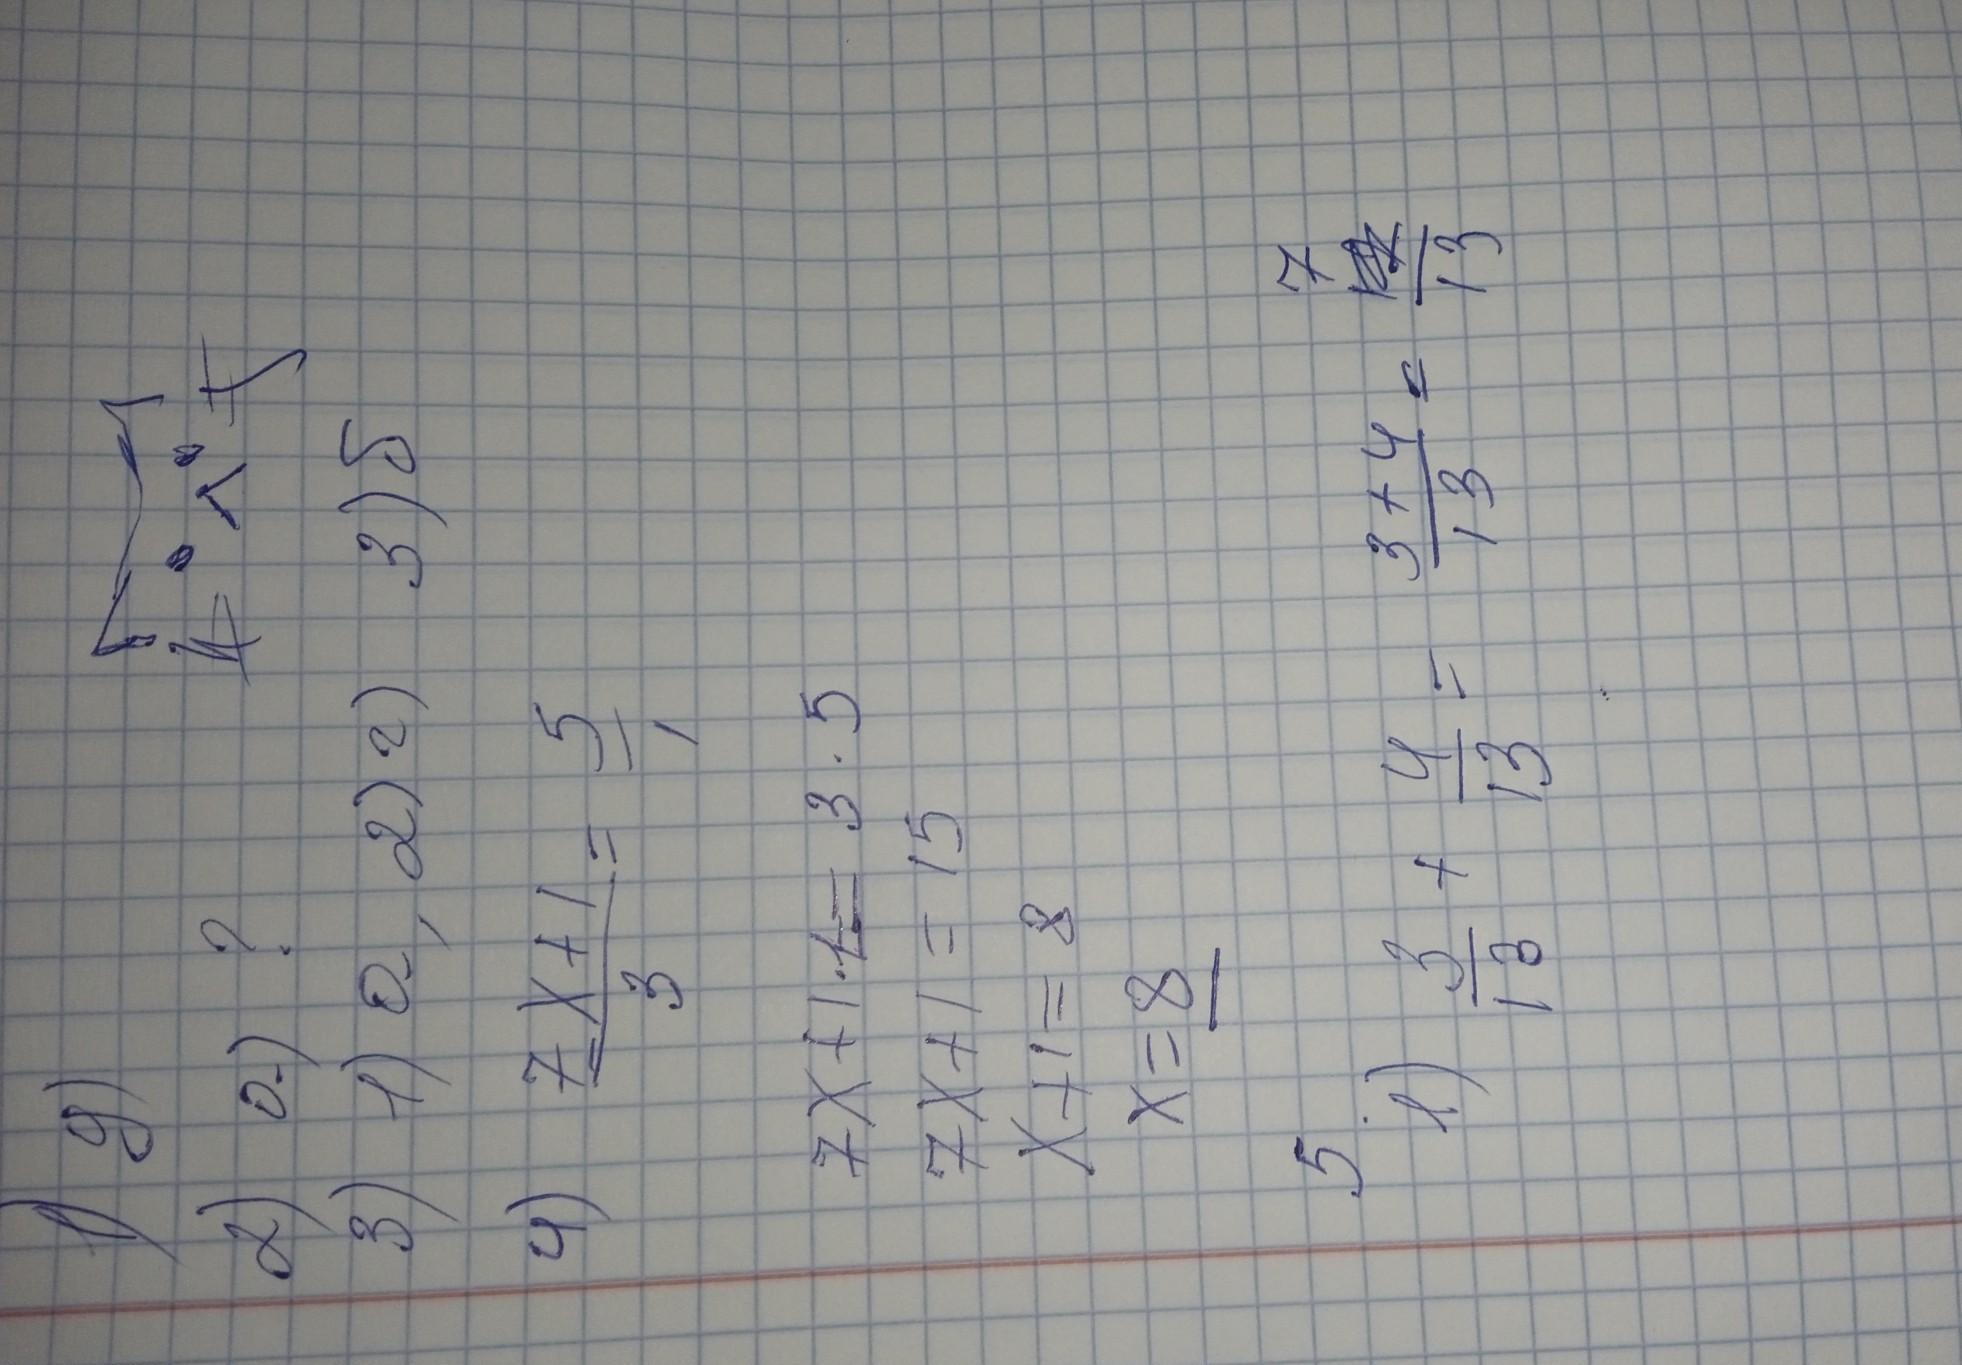 1) д)
2) а) ?
3) 1) а, 2) г) 3) б
4) 7x+1/3 = 5/1
7x+1·1= 3·5
7x+1=15
x+1=8
x=8
5 1) 3/13 + 4/13 = 3+4/13 = 7/13